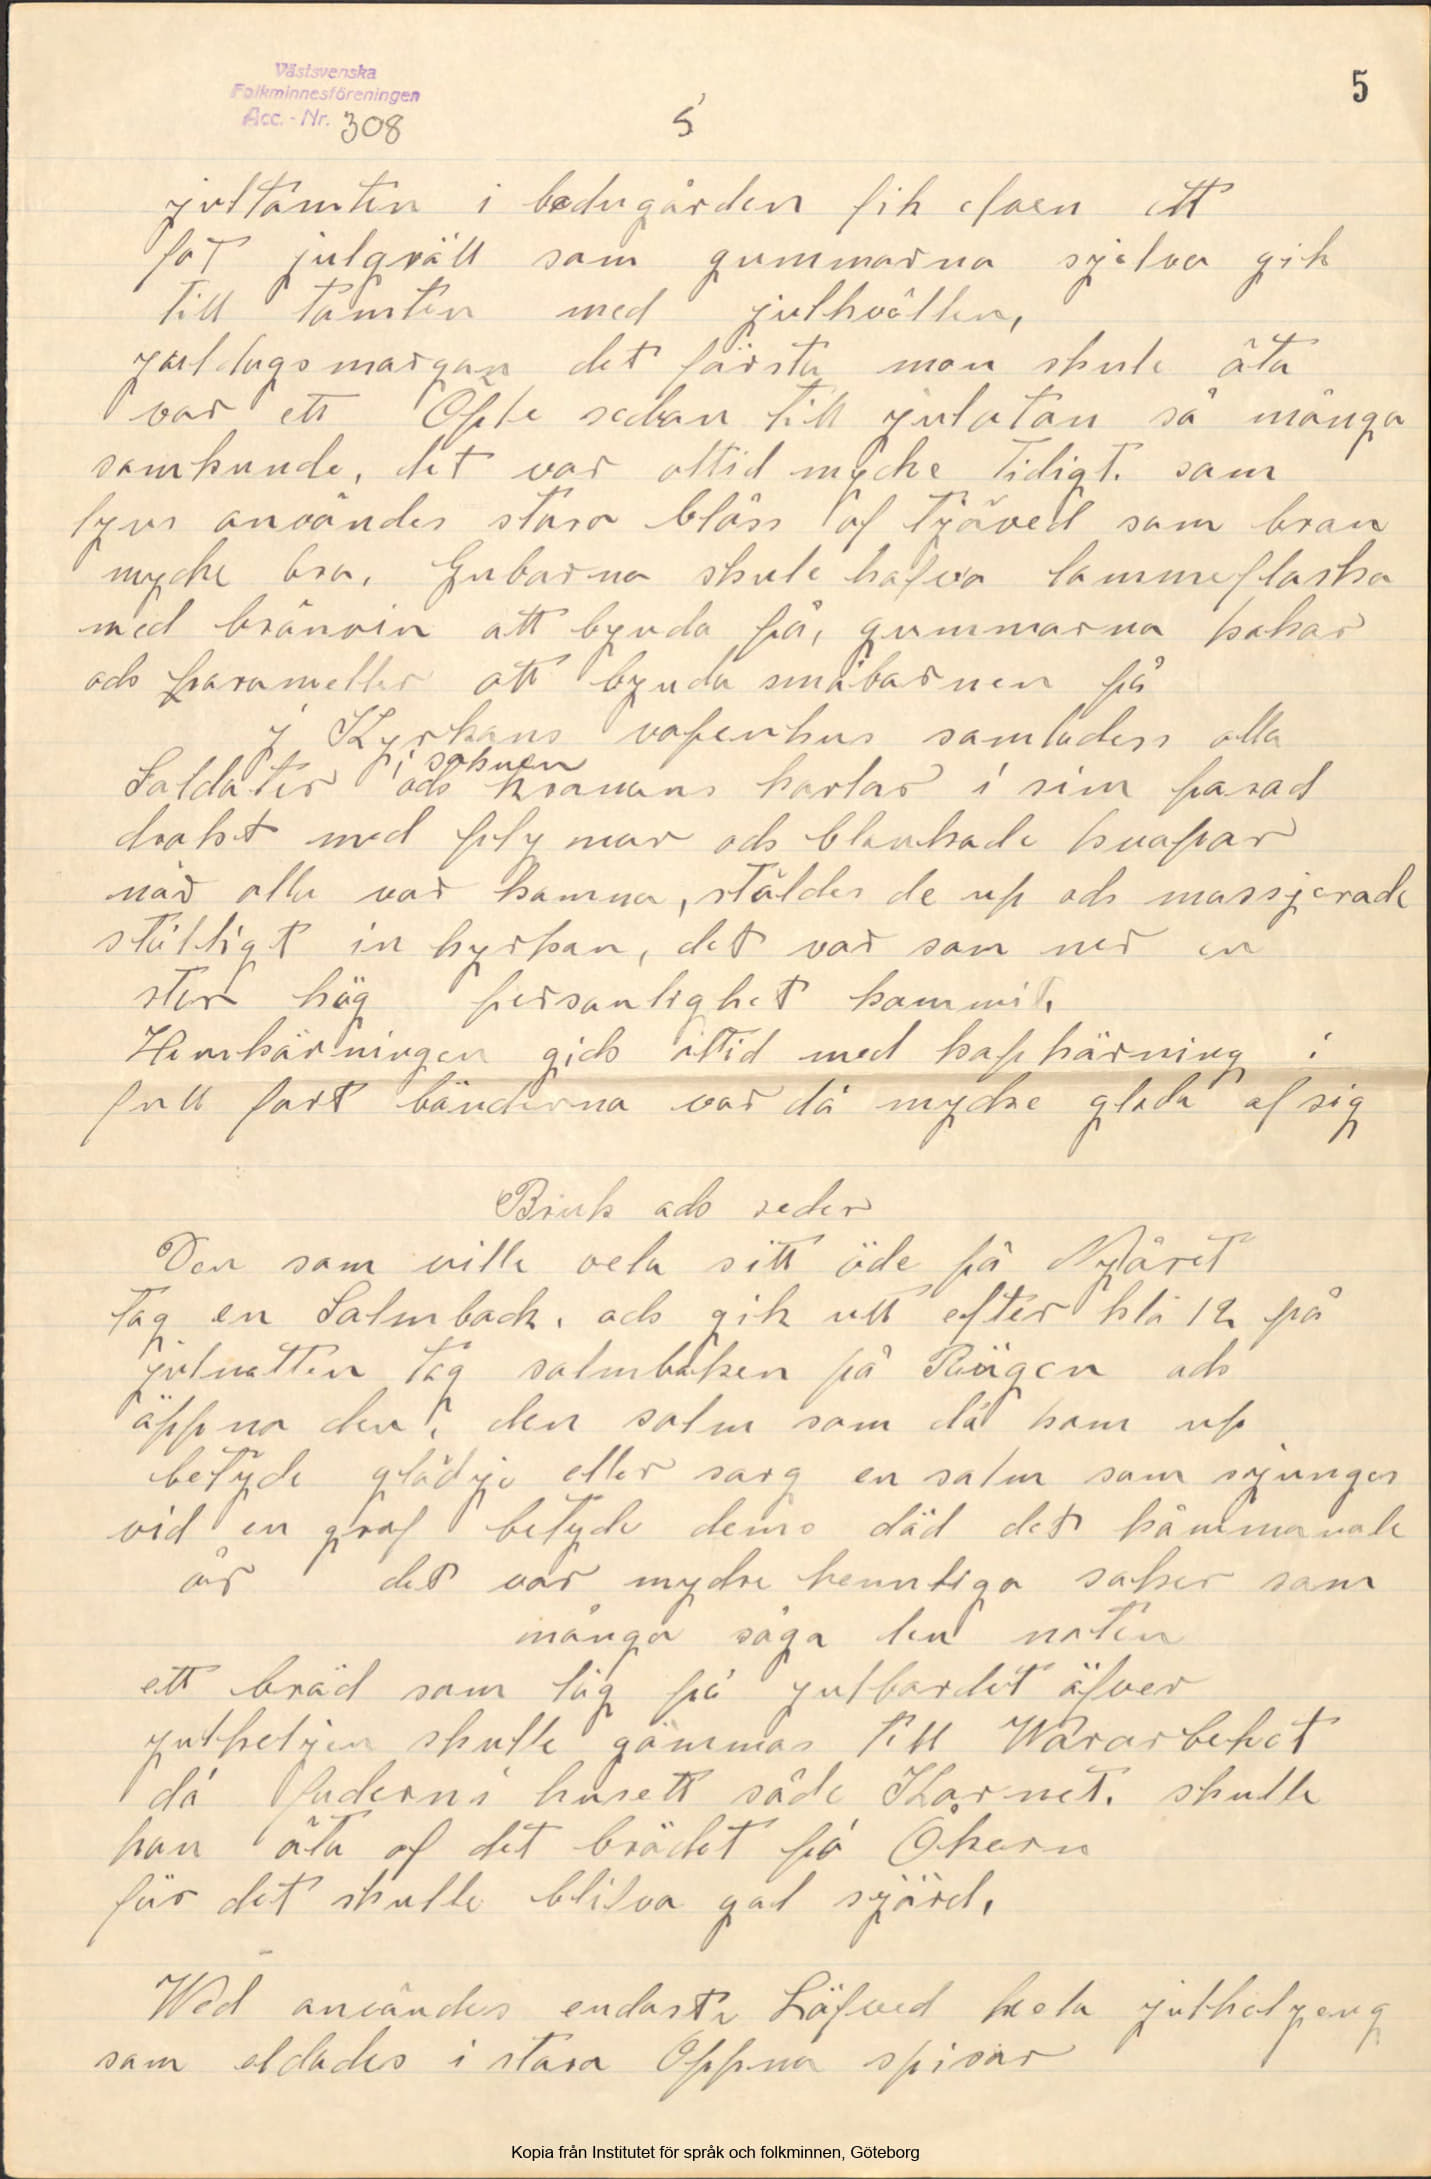 Västsvenska
Folkminnesföreningen
Acc. - Nr. 308
5
5
jultomten i ladugården fik även ett
fat julgrätt som gummorna själva gik
till tomten med julkvällen,
juldagsmorgon det första man skule äta
var ett Äple sedan till julotan så många
somkunde, det var altid mycke tidigt. som
lyus användes stora blåss af tjäved som bran
mycke bra, Gubarna skule hafva lommeflaska
med bränvin att byuda på, gummorna kakar
och karameller att byuda småbarnen på
j Kyrkans vapenhus samlades alla
i soknen
Soldater och kronans karlar i sin parad
dräkt med plymar och blankade knapar
när alla var komna, stäldes de up och massjerade
ståtligt in kyrkan, det var som när en
stor hög personlighet kommit.
Hemkörningen gick altid med kapkörning i
full fart bönderna var då mycke glada af sig
Bruk och seder
Den som ville veta sitt öde på Nyåret
tog en Salmbock. och gik utt efter klå 12 på
julnatten tog salmboken på Rügen och
öppna den, den salm som då kom up
betyde glädje eller sorg en salm som sjunges
vid en graf betyde dens död det kommande
år det var mycke hemliga saker som
många såga den naten
ett bröd som låg på julbordet öfver
julheljen skulle gömmas till Wårarbetet
då fadern i husett såde Kornet. skulle
han äta af det brödet på Åkern
för det skulle blifva god sjörd,
Wed användes endaste Löfved hela julheljeng
som eldades i stora Öppna spisar
Kopia från Institutet för språk och folkminnen, Göteborg